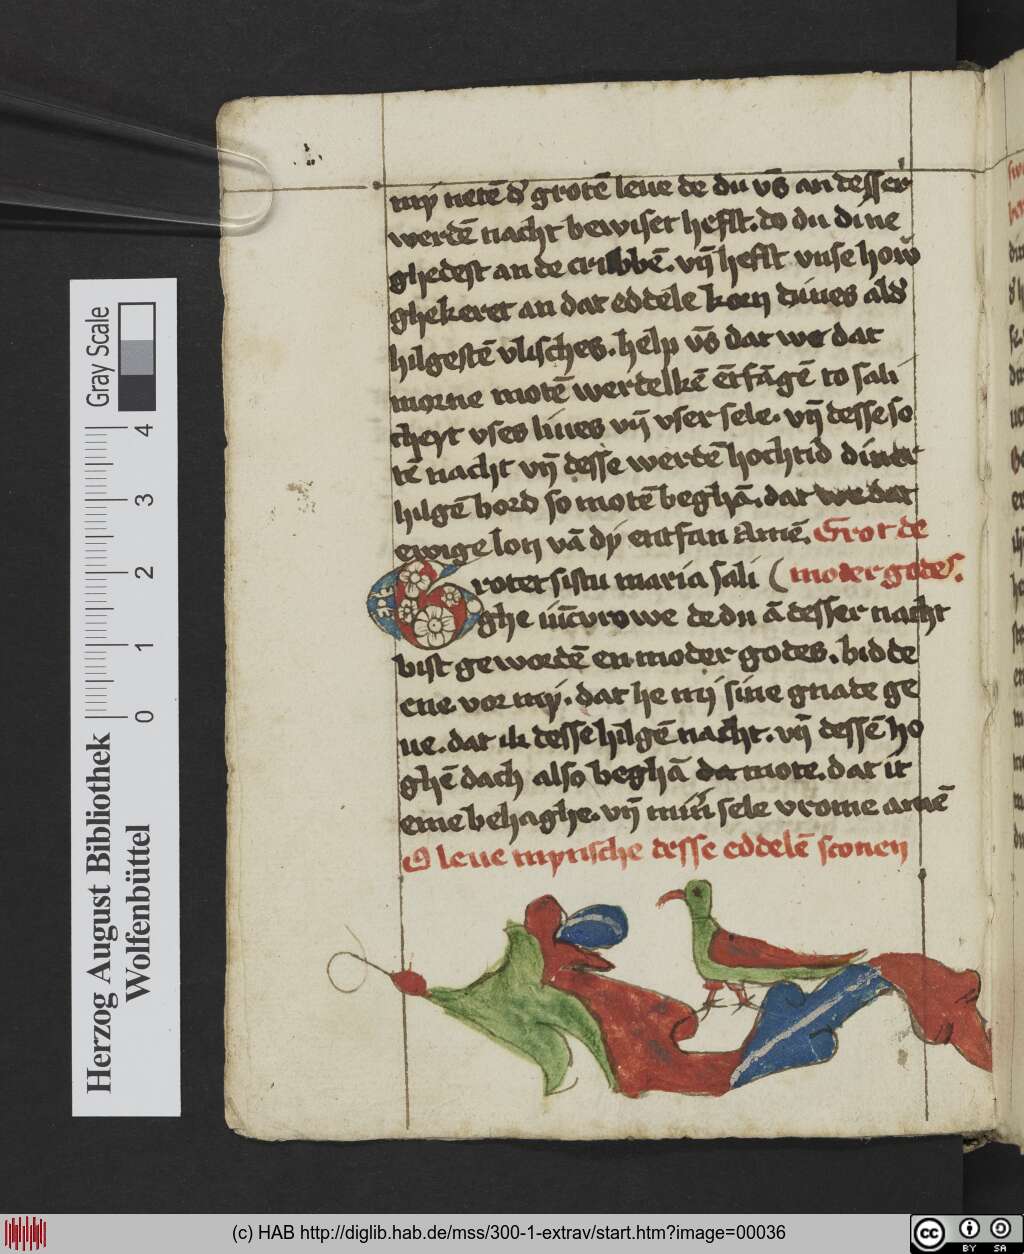 mÿ netē d' grotē leue de du vs̄ an desser
werdē nacht bewiset hefst. do du di ne
ghedest an de cribbē. vn̄ hefst vnse how
ghekeret an dat eddele korn dines alď
hilgestē vlisches. help vs̄ dat we dat
morne motē werdelkē ētfāgē to sali
cheyt vses liues vn̄ vser sele. vn̄ desse so
tē nacht vn̄ desse werdē hochtid diner
hilgē bord so motē beghā. dat we dat
ewige lon vā dÿ entfan Amē. Grot de
Grotet sistu maria sali ( moder godes.
ghe iūcvrowe de du ā desser nacht
bist gewordē en moder godes. bidde
ene vor mÿ. dat he mÿ sine gnade ge
ue. dat ik dessē hilgē nacht. vn̄ dessē ho
ghē dach also beghā mote. dat it
eme behaghe. vn̄ mīn sele vrome amē
O leue mynsche desse eddelē sconen
Herzog August Bibliothek
Wolfenbüttel
0 1 2 3 4
Gray Scale
(c) HAB http://diglib.hab.de/mss/300-1-extrav/start.htm?image=00036
cc BY SA